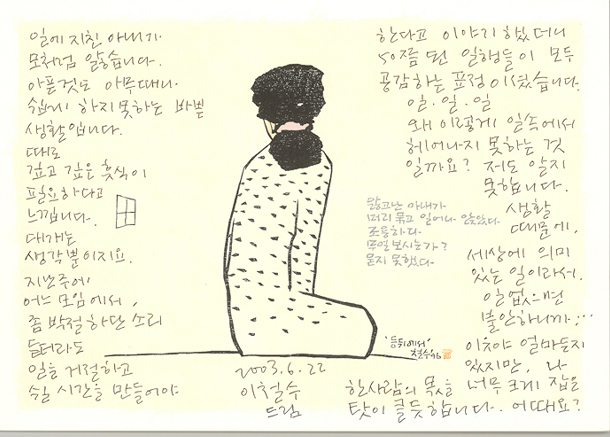 일에 지친 아내가
모처럼 앓습니다.
아픈것도 아무때나
쉽게 하지 못하는 바쁜
생활입니다.
때로
깊고 깊은 휴식이
필요하다고
느낍니다.
대개는
생각뿐이지요.
지난주에
어느 모임에서,
좀 박절하단 소리
듣더라도
일을 거절하고
쉴 시간을 만들어야
한다고 이야기 했더니
50쯤 된 일행들이 모두
공감하는 표정이셨습니다.
일·일·일
왜 이렇게 일속에서
헤어나지 못하는 것
일까요? 저도 알지
못합니다.
생활
때문에,
세상에 의미
있는 일이라서.
일 없으면
불안하니까;…
이유야 얼마든지
있지만, 나
한사람의 몫을 너무 크게 잡은
탓이 클듯합니다. 어때요?
앓고난 아내가
머리 묶고 일어나 앉았다.
조용하다.
무얼 보시는가?
묻지 못했다.
"등뒤에서"
철수 96
2003.6.22
이철수
드림